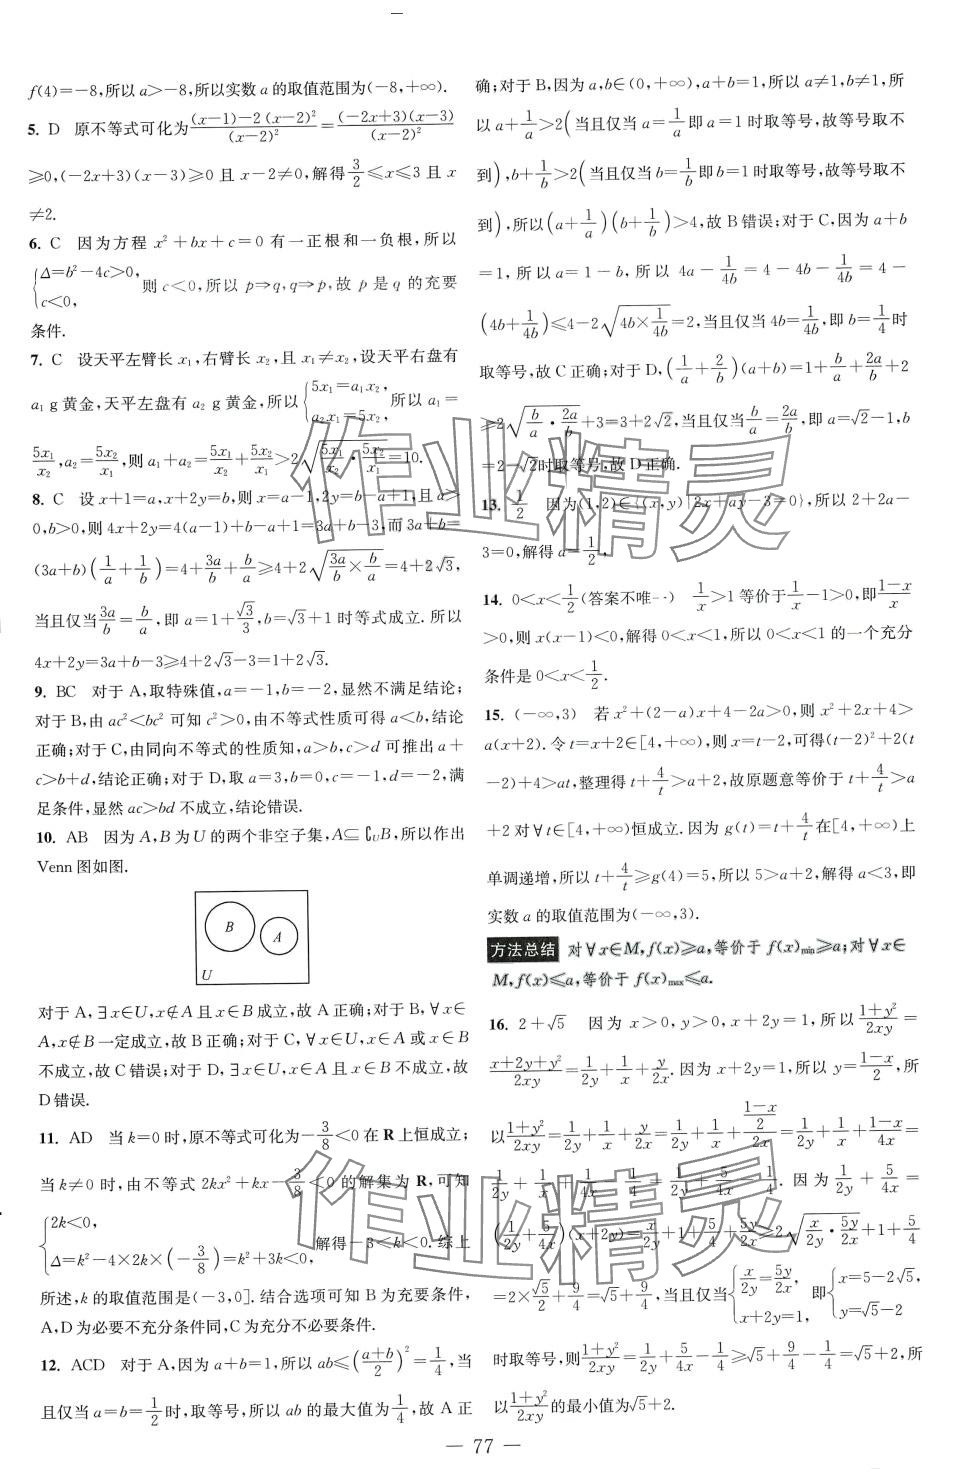 f(4)=-8,所以 a>-8,所以实数 a 的取值范围为(-8,+∞).
5. D 原不等式可化为 \frac{(x-1)-2(x-2)^2}{(x-2)^2}=\frac{(-2x+3)(x-3)}{(x-2)^2}
≥0,(-2x+3)(x-3)≥0 且 x-2≠0,解得 \frac{3}{2}≤x≤3 且 x
≠2.
6. C 因为方程 x²+bx+c=0 有一正根和一负根,所以
{Δ=b²-4c>0, c<0, 则 c<0,所以 p⇒q,q⇒p,故 p 是 q 的充要
条件.
7. C 设天平左臂长 x₁,右臂长 x₂,且 x₁≠x₂,设天平右盘有
a₁ g 黄金,天平左盘有 a₂ g 黄金,所以 {5x₁=a₁x₂, a₂x₁=5x₂, 所以 a₁=
\frac{5x₁}{x₂},a₂=\frac{5x₂}{x₁},则 a₁+a₂=\frac{5x₁}{x₂}+\frac{5x₂}{x₁}>2\sqrt{\frac{5x₁}{x₂}·\frac{5x₂}{x₁}}=10.
8. C 设 x+1=a,x+2y=b,则 x=a-1,2y=b-a+1,且 a>
0,b>0,则 4x+2y=4(a-1)+b-a+1=3a+b-3,而 3a+b=
(3a+b)(\frac{1}{a}+\frac{1}{b})=4+\frac{3a}{b}+\frac{b}{a}≥4+2\sqrt{\frac{3a}{b}×\frac{b}{a}}=4+2√3,
当且仅当 \frac{3a}{b}=\frac{b}{a},即 a=1+\frac{√3}{3},b=√3+1 时等式成立.所以
4x+2y=3a+b-3≥4+2√3-3=1+2√3.
9. BC 对于 A,取特殊值,a=-1,b=-2,显然不满足结论;
对于 B,由 ac²<bc² 可知 c²>0,由不等式性质可得 a<b,结论
正确;对于 C,由同向不等式的性质知,a>b,c>d 可推出 a+
c>b+d,结论正确;对于 D,取 a=3,b=0,c=-1,d=-2,满
足条件,显然 ac>bd 不成立,结论错误.
10. AB 因为 A,B 为 U 的两个非空子集,A⊆∁ᵤB,所以作出
Venn 图如图.
B A
U
对于 A,∃x∈U,x∉A 且 x∈B 成立,故 A 正确;对于 B,∀x∈
A,x∉B 一定成立,故 B 正确;对于 C,∀x∈U,x∈A 或 x∈B
不成立,故 C 错误;对于 D,∃x∈U,x∈A 且 x∈B 不成立,故
D 错误.
11. AD 当 k=0 时,原不等式可化为-\frac{3}{8}<0 在 R 上恒成立;
当 k≠0 时,由不等式 2kx²+kx-\frac{3}{8}<0 的解集为 R,可知
{2k<0, Δ=k²-4×2k×(-\frac{3}{8})=k²+3k<0, 解得-3<k<0.综上
所述,k 的取值范围是(-3,0].结合选项可知 B 为充要条件,
A,D 为必要不充分条件同,C 为充分不必要条件.
12. ACD 对于 A,因为 a+b=1,所以 ab≤(\frac{a+b}{2})²=\frac{1}{4},当
且仅当 a=b=\frac{1}{2}时,取等号,所以 ab 的最大值为\frac{1}{4},故 A 正
确;对于 B,因为 a,b∈(0,+∞),a+b=1,所以 a≠1,b≠1,所
以 a+\frac{1}{a}>2(当且仅当 a=\frac{1}{a}即 a=1 时取等号,故等号取不
到),b+\frac{1}{b}>2(当且仅当 b=\frac{1}{b}即 b=1 时取等号,故等号取不
到),所以(a+\frac{1}{a})(b+\frac{1}{b})>4,故 B 错误;对于 C,因为 a+b
=1,所以 a=1-b,所以 4a-\frac{1}{4b}=4-4b-\frac{1}{4b}=4-
(4b+\frac{1}{4b})≤4-2\sqrt{4b×\frac{1}{4b}}=2,当且仅当 4b=\frac{1}{4b},即 b=\frac{1}{4}时
取等号,故 C 正确;对于 D,(\frac{1}{a}+\frac{2}{b})(a+b)=1+\frac{b}{a}+\frac{2a}{b}+2
≥2\sqrt{\frac{b}{a}·\frac{2a}{b}}+3=3+2√2,当且仅当\frac{b}{a}=\frac{2a}{b},即 a=√2-1,b
=2-√2时取等号,故 D 正确.
13. \frac{1}{2} 因为(1,2)∈{(x,y)|2x+ay-3=0},所以 2+2a-
3=0,解得 a=\frac{1}{2},
14. 0<x<\frac{1}{2}(答案不唯一) \frac{1}{x}>1 等价于\frac{1}{x}-1>0,即\frac{1-x}{x}
>0,则 x(x-1)<0,解得 0<x<1,所以 0<x<1 的一个充分
条件是 0<x<\frac{1}{2}.
15. (-∞,3) 若 x²+(2-a)x+4-2a>0,则 x²+2x+4>
a(x+2).令 t=x+2∈[4,+∞),则 x=t-2,可得(t-2)²+2(t
-2)+4>at,整理得 t+\frac{4}{t}>a+2,故原题意等价于 t+\frac{4}{t}>a
+2 对∀t∈[4,+∞)恒成立.因为 g(t)=t+\frac{4}{t}在[4,+∞)上
单调递增,所以 t+\frac{4}{t}≥g(4)=5,所以 5>a+2,解得 a<3,即
实数 a 的取值范围为(-∞,3).
方法总结 对∀x∈M,f(x)≥a,等价于 f(x)min≥a;对∀x∈
M,f(x)≤a,等价于 f(x)max≤a.
16. 2+√5 因为 x>0,y>0,x+2y=1,所以\frac{1+y²}{2xy}=
\frac{x+2y+y²}{2xy}=\frac{1}{2y}+\frac{1}{x}+\frac{y}{2x}.因为 x+2y=1,所以 y=\frac{1-x}{2},所
以\frac{1+y²}{2xy}=\frac{1}{2y}+\frac{1}{x}+\frac{y}{2x}=\frac{1}{2y}+\frac{1}{x}+\frac{\frac{1-x}{2}}{2x}=\frac{1}{2y}+\frac{1}{x}+\frac{1-x}{4x}=
\frac{1}{2y}+\frac{1}{x}+\frac{1}{4x}-\frac{1}{4}=\frac{1}{2y}+\frac{5}{4x}-\frac{1}{4}.因为\frac{1}{2y}+\frac{5}{4x}=
(\frac{1}{2y}+\frac{5}{4x})(x+2y)=\frac{x}{2y}+1+\frac{5}{4}+\frac{5y}{2x}≥2\sqrt{\frac{x}{2y}·\frac{5y}{2x}}+1+\frac{5}{4}
=2×\frac{√5}{2}+\frac{9}{4}=√5+\frac{9}{4},当且仅当{\frac{x}{2y}=\frac{5y}{2x}, x+2y=1, 即{x=5-2√5, y=√5-2
时取等号,则\frac{1+y²}{2xy}=\frac{1}{2y}+\frac{5}{4x}-\frac{1}{4}≥√5+\frac{9}{4}-\frac{1}{4}=√5+2,所
以\frac{1+y²}{2xy}的最小值为√5+2.
— 77 —
作业精灵
作业精灵